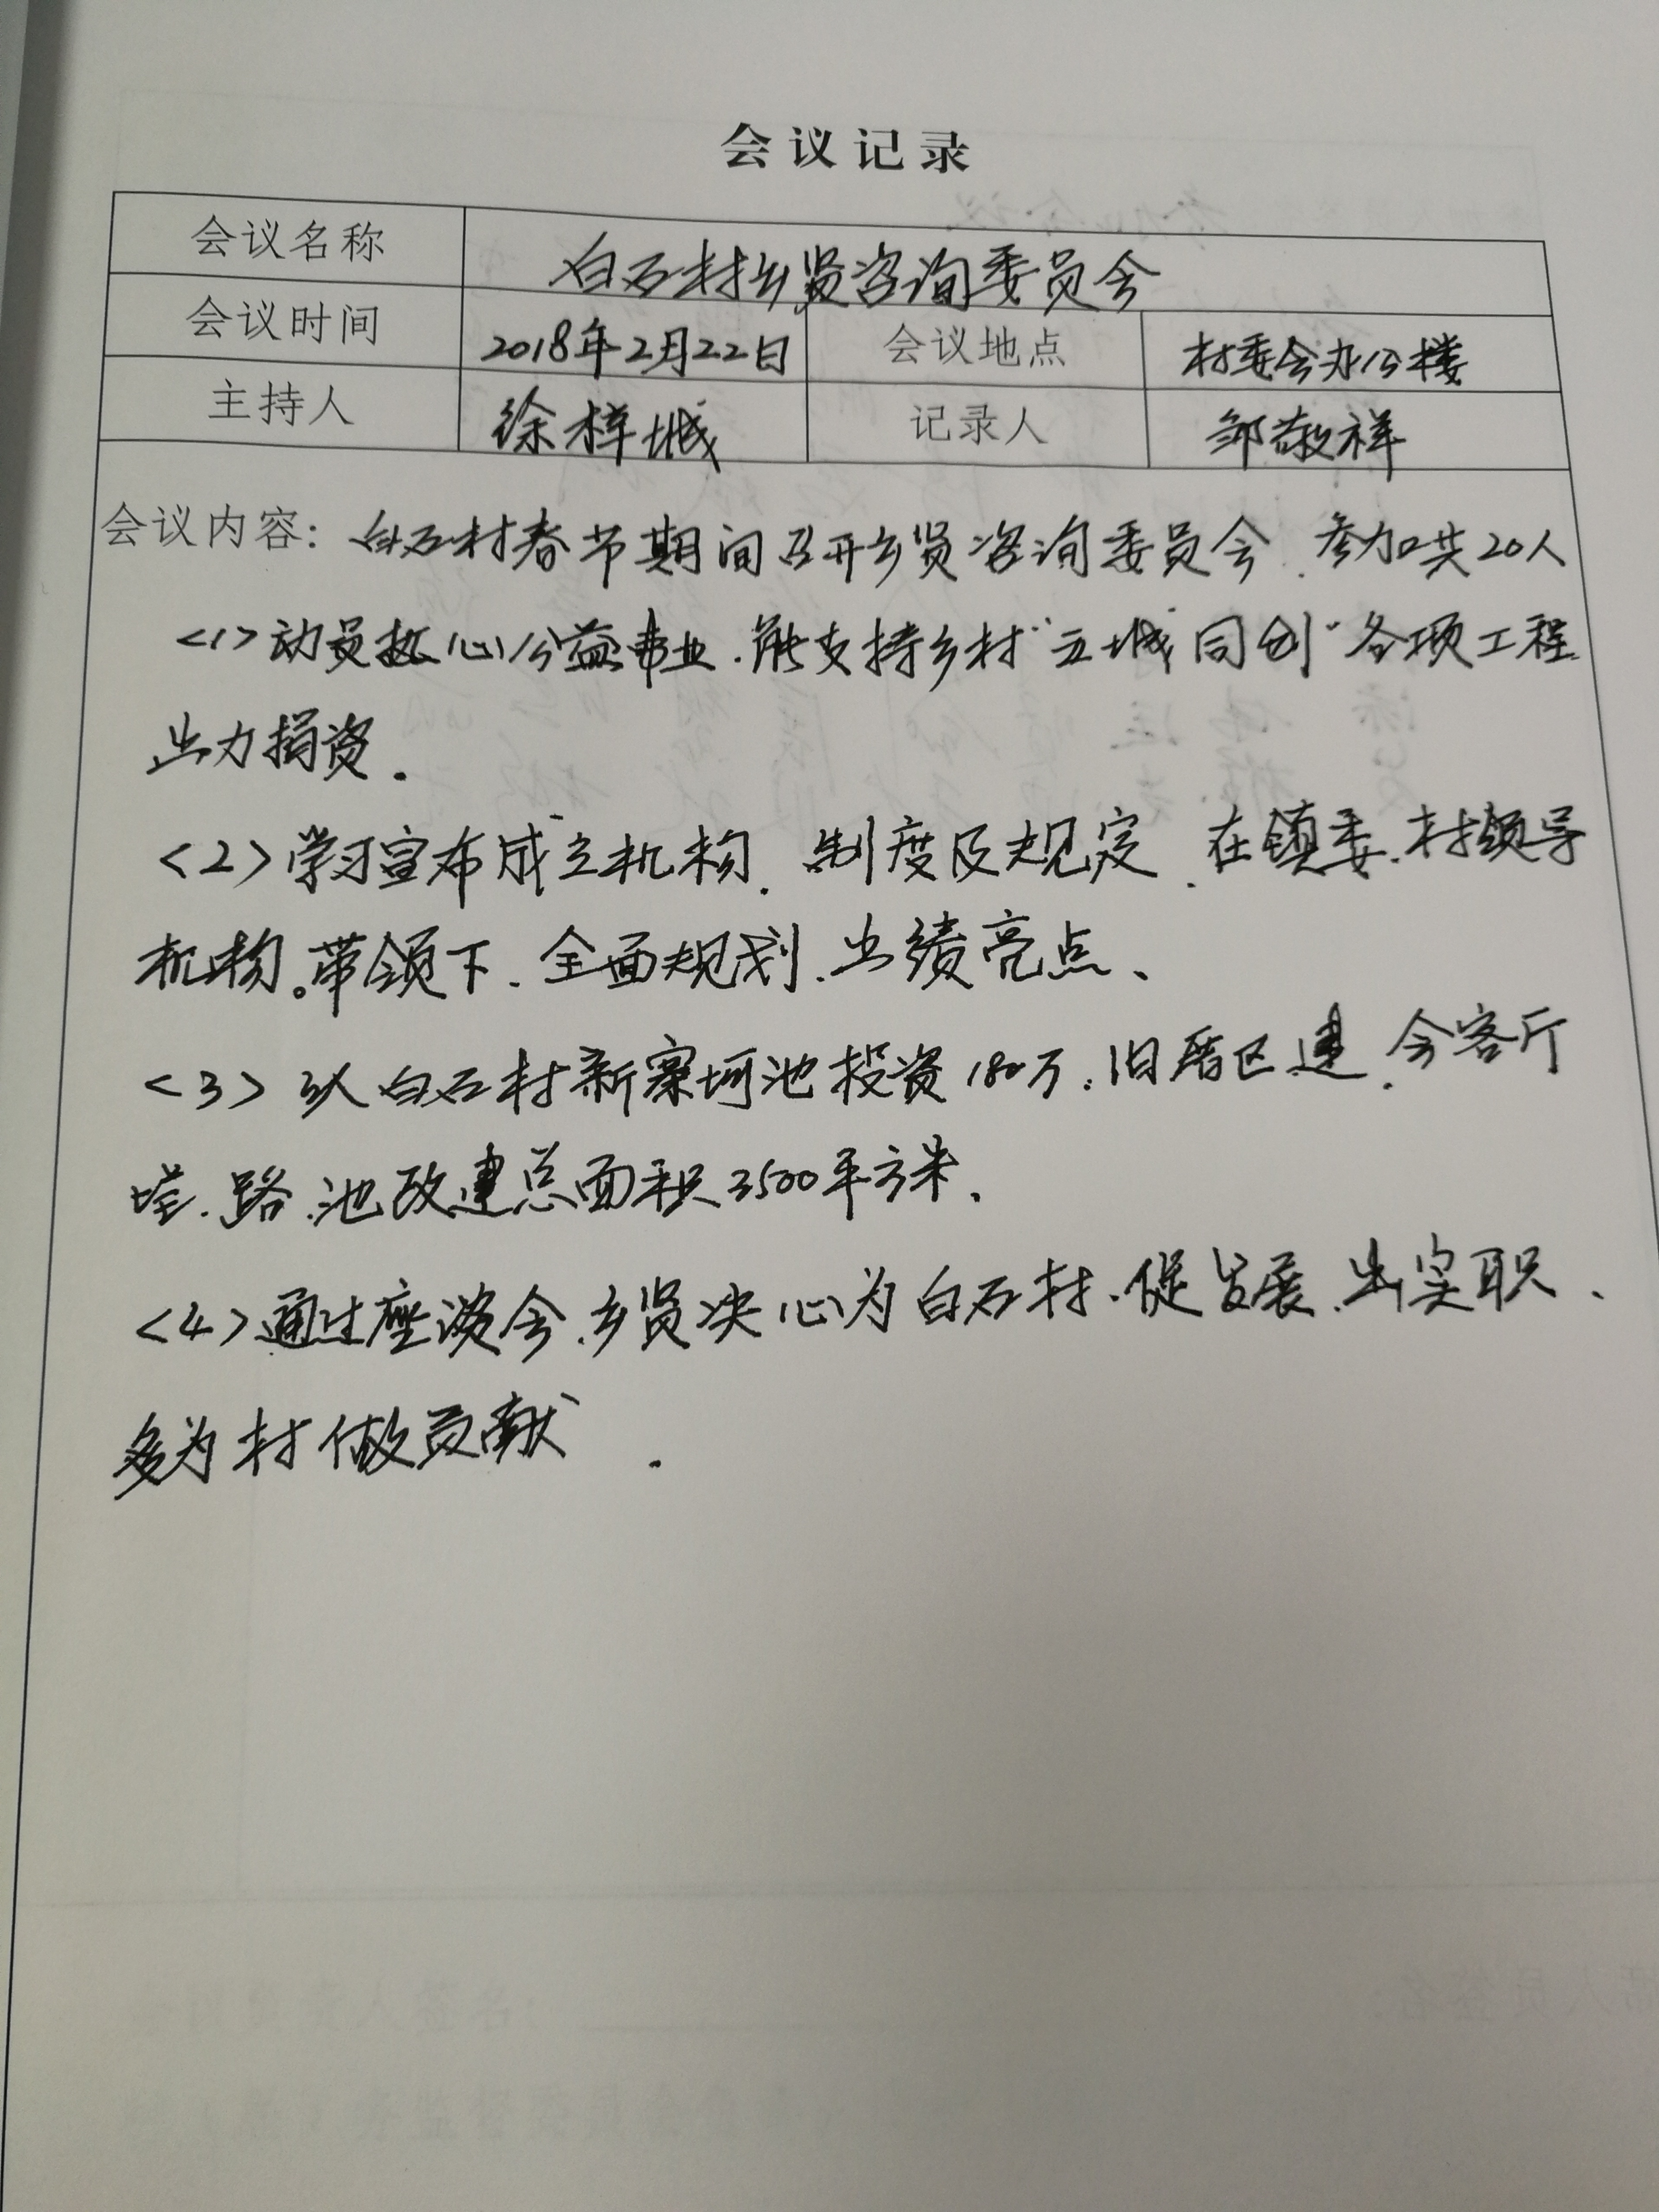 会议记录
会议名称 白石村乡贤咨询委员会
会议时间 2018年2月22日 会议地点 村委会办公楼
主持人 徐梓城 记录人 邹敬祥
会议内容：白石村春节期间召开乡贤咨询委员会、参加共20人
<1>动员热心公益事业.能支持乡村“五城同创”各项工程
出力捐资.
<2>学习宣布成立机构、制度及规定、在镇委、村领导
机构。带领下、全面规划、出绩亮点、
<3>从白石村新寨 池投资180万:旧 区建、会客厅
路、池改建总面积3500平方米、
<4>通过座谈会、乡贤决心为白石村、促发展、出实职、
多为村做贡献.